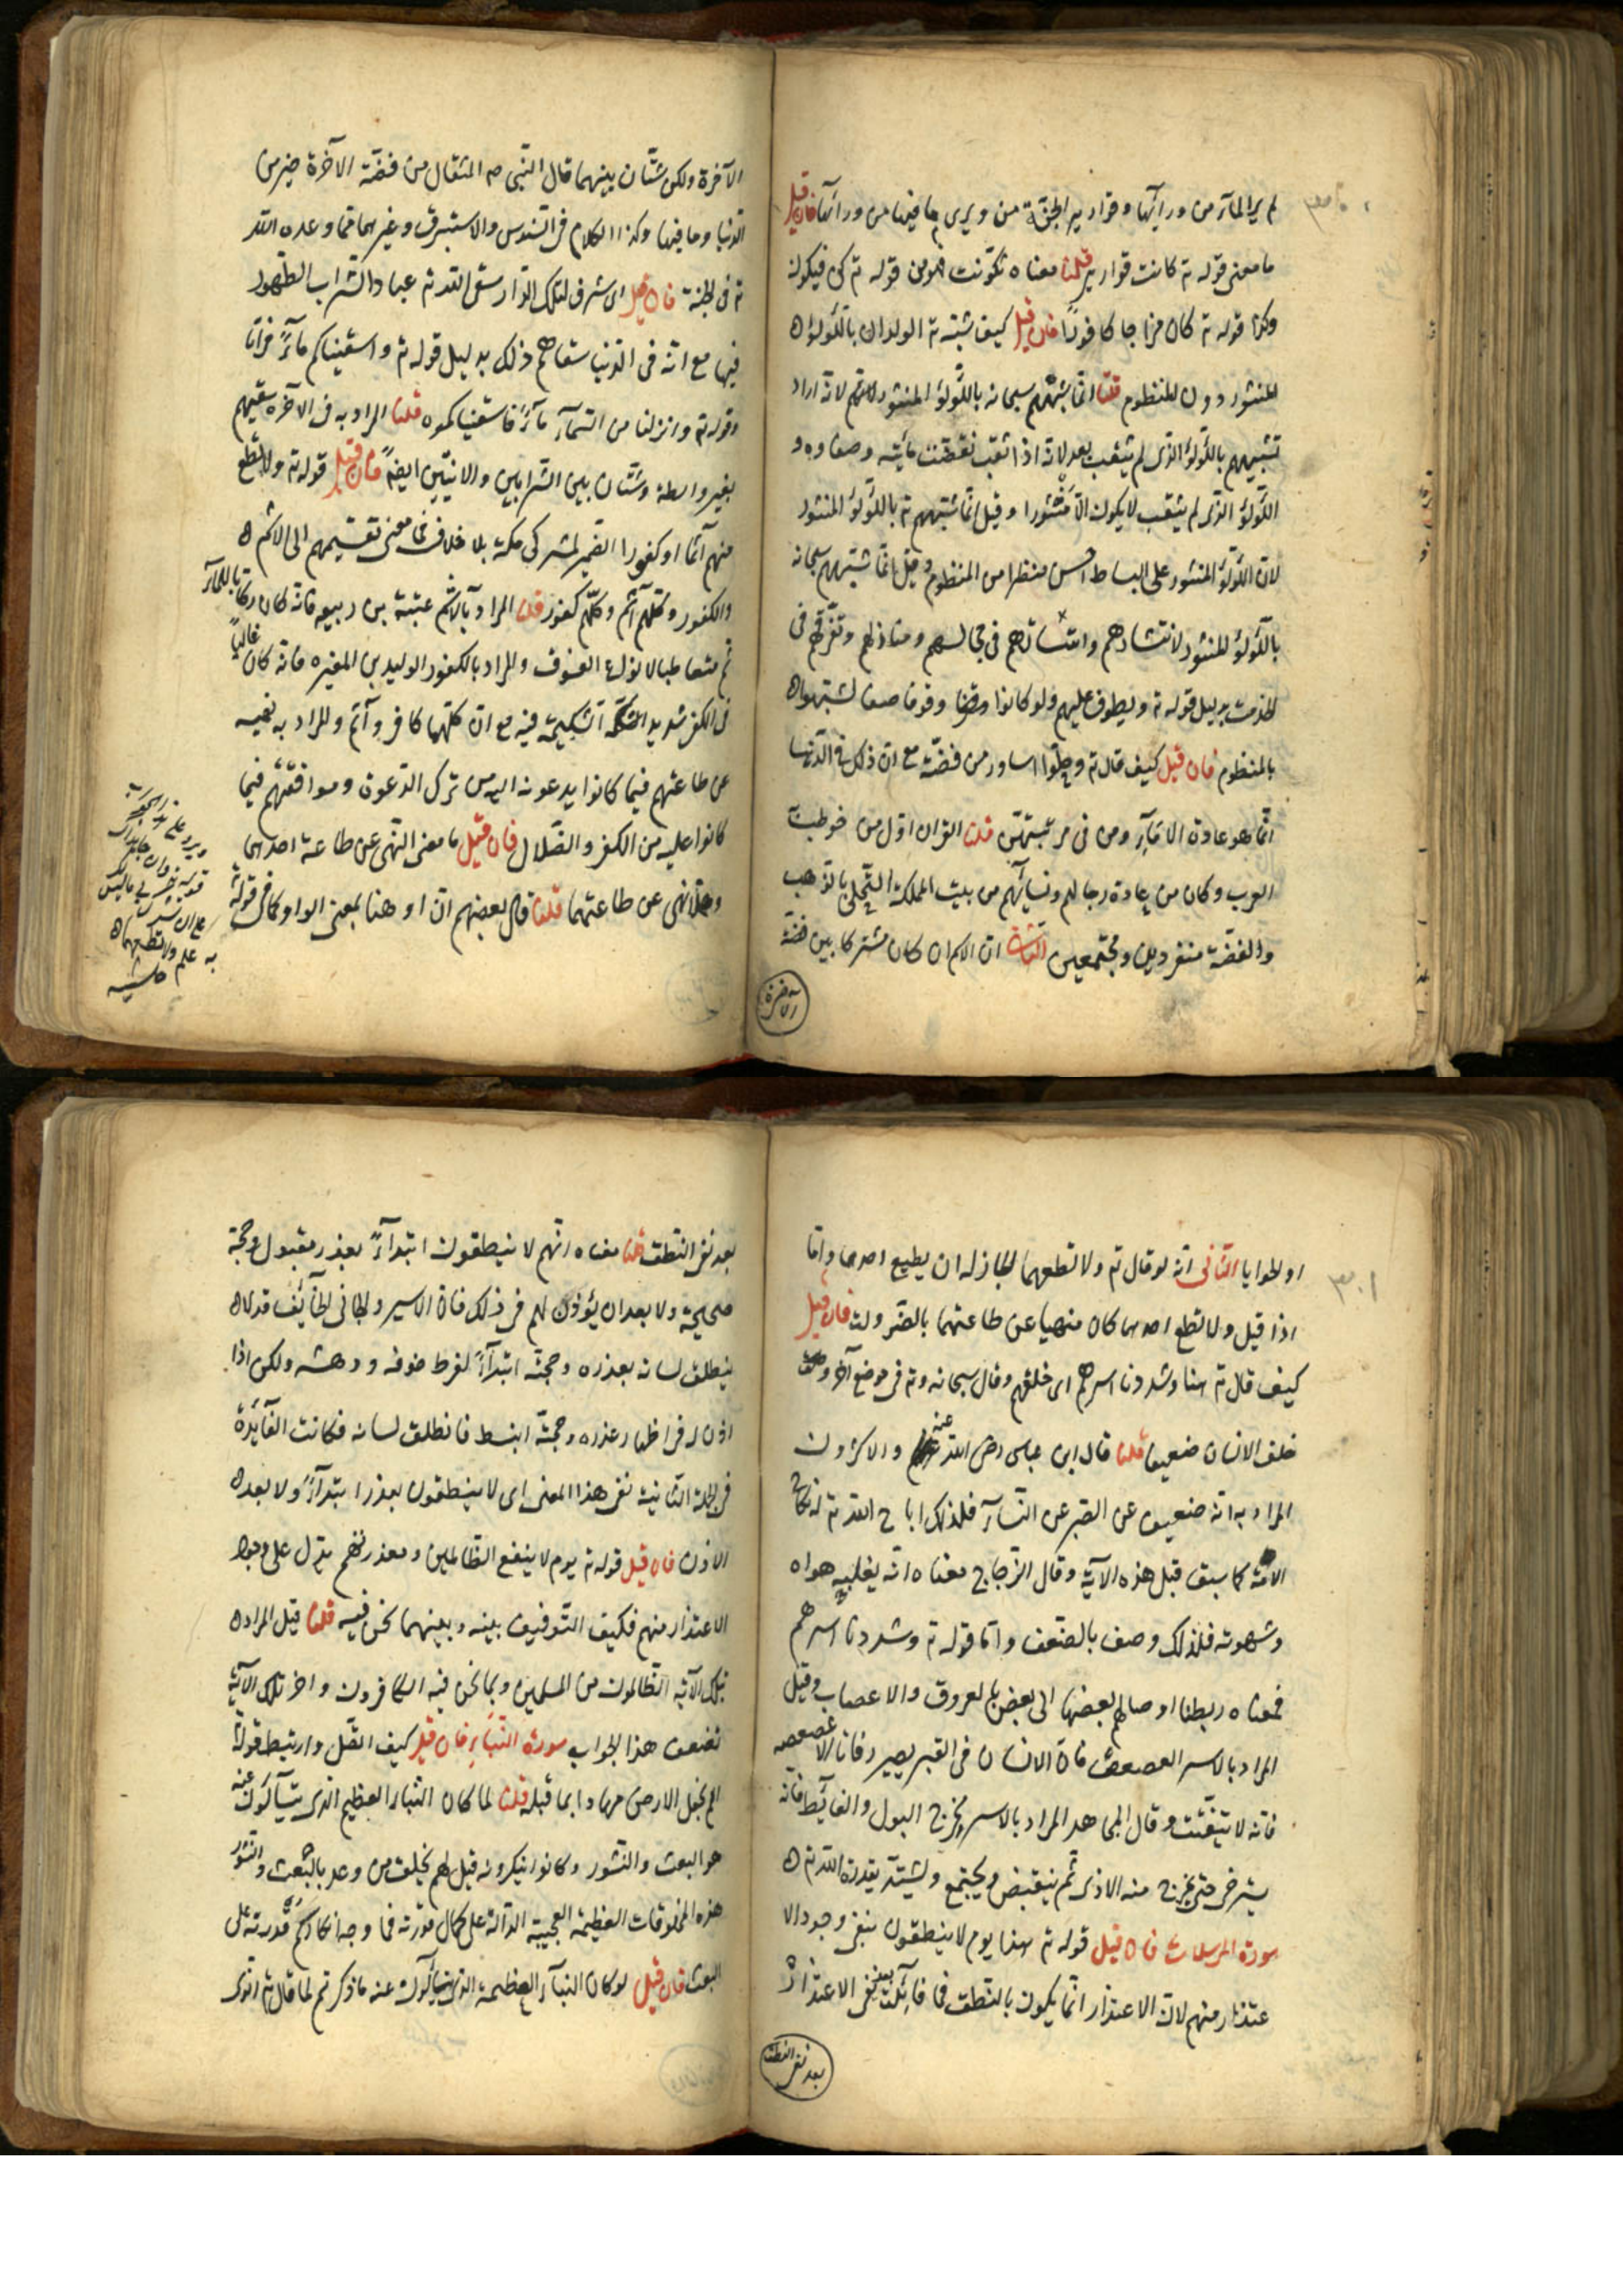 لم ير الماء من ورائها وقوارير الجنة من ويرى ما فيها من ورائها فان قيل
ما معنى قوله تع كانت قوارير قلنا معناه تكونت فهو من قوله تع كن فيكون
وكذا قوله تع كان مزاجها كافورا فان قيل كيف شبه تع الولدان باللؤلؤ
المنثور دون المنظوم قلنا انما شبههم سبحانه باللؤلؤ المنثور لانه اراد
تشبيههم باللؤلؤ الذى لم يثقب بعد لانه اذا ثقب نقصت مائيته وصفاوه و
اللؤلؤ الذى لم يثقب لا يكون الا منثورا وقيل انما شبههم تع باللؤلؤ المنثور
لان اللؤلؤ المنثور على البساط احسن منظرا من المنظوم وقيل انما شبههم سبحانه
باللؤلؤ المنثور لانتشارهم وانبثاثهم فى مجالسهم ومنازلهم وتفرقهم فى
الخدمة بدليل قوله تع ويطوف عليهم ولو كانوا وقوفا صفا لشبهوا
بالمنظوم فان قيل كيف قال تع وحلوا اساور من فضة مع ان ذلك فى الدنيا
انما هو عادة الاماء ومن فى مرتبتهن قلنا القران اول من خوطب به
العرب وكان من عادة رجالهم ونسائهم من بيت المملكة التحلى بالذهب
والفضة منفردين ومجتمعين الثانى ان الاسم ان كان مشتركا بين فضة
الاخرة
الآخرة ولكن شتان بينهما قال النبى ص المثقال من فضة الآخرة خير من
الدنيا وما فيها وكذا الكلام فى السندس والاستبرق وغيرهما مما وعده الله
تع فى الجنة فان قيل اى شرف لتلك الدار سقى الله تع عباده الشراب الطهور
فيها مع انه فى الدنيا سقاهم ذلك بدليل قوله تع واسقيناكم ماء فراتا
وقوله تع وانزلنا من السماء ماء فاسقيناكموه قلنا المراد به فى الآخرة سقيهم
بغير واسطة وشتان بين الشرابين والانيتين ايضا فان قيل قوله تع ولا تطع
منهم آثما او كفورا الضمير لمشركى مكة بلا خلاف فما معنى تقسيمهم الى الاثم
والكفور وكلهم آثم وكلهم كفور قلنا المراد بالاثم عتبة بن ربيعة فانه كان ركابا للمآثم
متعاطيا لانواع الفسوق والمراد بالكفور الوليد بن المغيرة فانه كان غاليا
فى الكفر شديد الشكيمة فيه مع ان كليهما كافر وآثم والمراد به نهيه
عن طاعتهم فيما كانوا يدعونه اليه من ترك الدعوة وموافقتهم فيما
كانوا عليه من الكفر والضلال فان قيل ما معنى النهى عن طاعة احدهما
وهلا نهى عن طاعتهما قلنا قال بعضهم ان او هنا بمعنى الواو كما فى قوله تع
به علم ولا تطعهما
او الحوايا الثانى انه لو قال تع ولا تطعهما لجاز له ان يطيع احدهما واما
اذا قيل ولا تطع احدهما كان منهيا عن طاعتهما بالضرورة فان قيل
كيف قال تع هنا وشددنا اسرهم اى خلقهم وقال سبحانه وتع فى موضع آخر
خلق الانسان ضعيفا قلنا قال ابن عباس رضى الله عنه والاكثرون
المراد به انه ضعيف عن الصبر عن النساء فلذلك اباح الله تع له نكاح
الامة كما سبق قبل هذه الآية وقال الزجاج معناه انه يغلبه هواه
وشهوته فلذلك وصف بالضعف واما قوله تع وشددنا اسرهم
فمعناه ربطنا اوصالهم بعضها الى بعض بالعروق والاعصاب وقيل
المراد بالاسر العصعص فان الانسان فى القبر يصير رفاتا الا عصعصه
فانه لا يتفتت وقال المجاهد المراد بالاسر مخرج البول والغائط فانه
يسترخى حتى يخرج منه الاذى ثم ينقبض ويجتمع ويشتد بقدرة الله تع
سورة المرسلات فان قيل قوله تع هذا يوم لا ينطقون ينفى وجود الا
عتذار منهم لان الاعتذار انما يكون بالنطق فما فائدة نفى الاعتذار
بعد نفى النطق
بعد نفى النطق قلنا معناه انهم لا ينطقون ابتداء بعذر مقبول وحجة
صحيحة ولا بعد ان يؤذن لهم فى ذلك فان الاسير والجانى الخائف قد لا
ينطلق لسانه بعذره وحجته ابتداء لفرط خوفه ودهشته ولكن اذا
اذن له فى اظهار عذره وحجته انبسط فانطلق لسانه فكانت الفائدة
فى الجملة الثانية نفى هذا المعنى اى لا ينطقون بعذر ابتداء ولا بعد
الاذن فان قيل قوله تع يوم لا ينفع الظالمين معذرتهم يدل على وجود
الاعتذار منهم فكيف التوفيق بينه وبينهما نحن فيه قلنا قيل المراد
بتلك الآية الظالمون من المسلمين وبما نحن فيه الكافرون واخر تلك الآية
تضعف هذا الجواب سورة النباء فان قيل كيف اتصل وارتبط قوله تع
الم نجعل الارض مهادا بما قبله قلنا لما كان النباء العظيم الذى يتسآئلون عنه
هو البعث والنشور وكانوا ينكرونه قيل لهم الم يخلق من وعد بالبعث والنشور
هذه المخلوقات العظيمة العجيبة الدالة على كمال قدرته فما وجه انكاركم قدرته على
البعث فان قيل لو كان النباء العظيم الذى يتسائلون عنه ما ذكرتم لما قال تع الذى